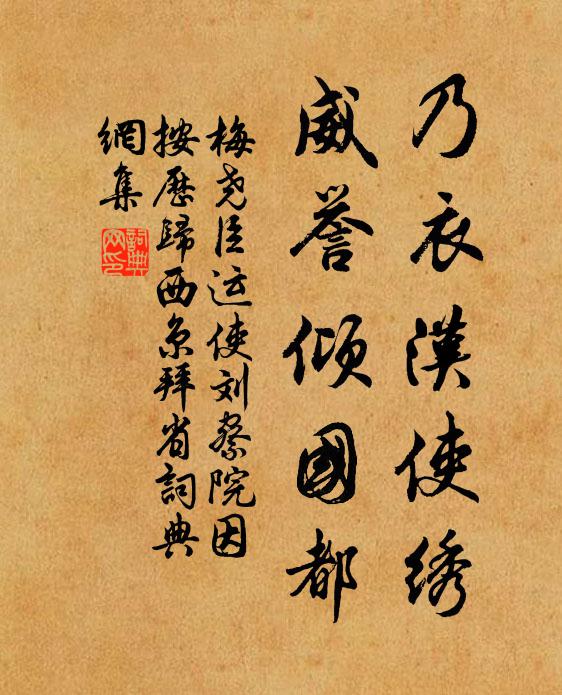 乃衣漢使绣
威誉傾國都
梅尧臣运使刘察院因
按歷歸西京拜省詞典
網集
詞典網印